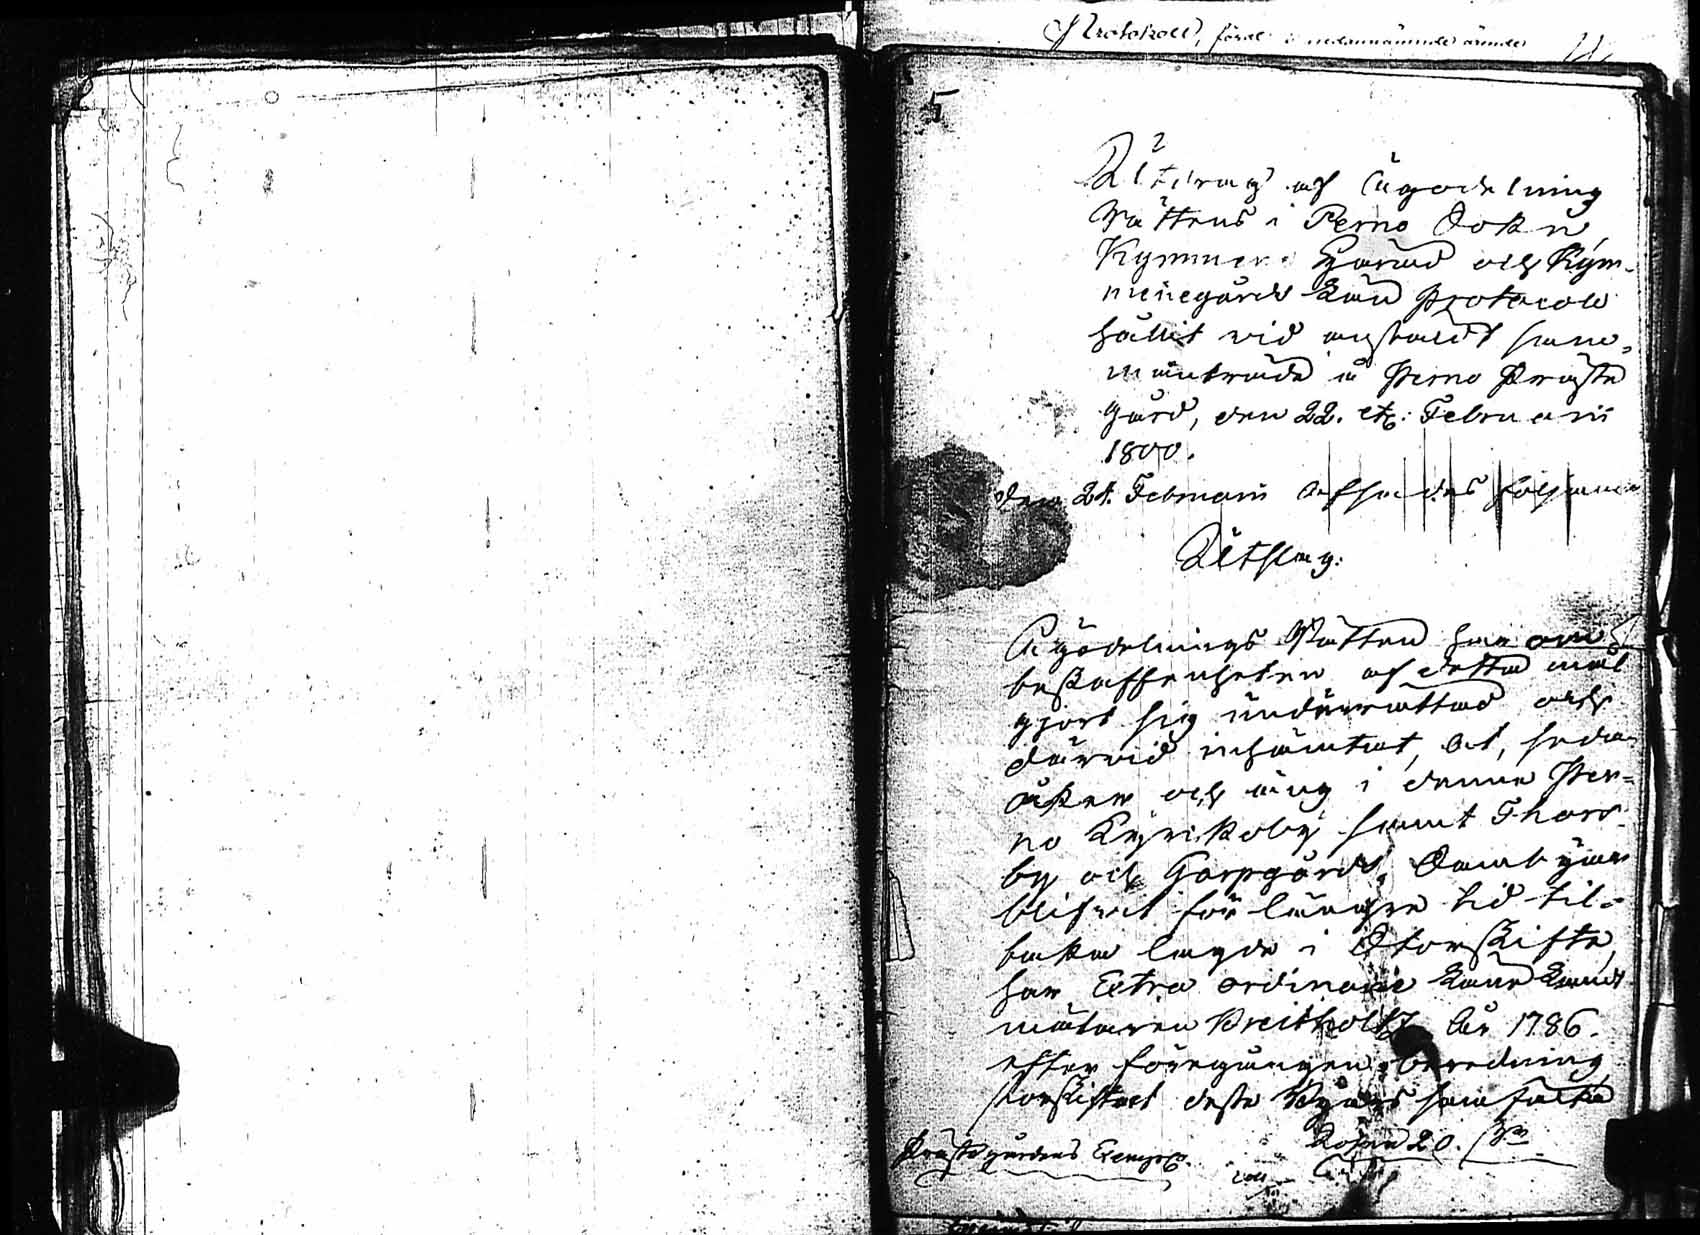 Protokoll, förd i nedannämnde ärender
5
Utdrag af Ägodelning
Rättens i Perno Sokn
Kymmene Härad och Kym-
menegårds Län Protocoll
hållit vid anstäldt sam-
manträde å Perno Präste
gård, den 22. etc. Februarii
1800.
Den 24. Februarii afsades följande
Utslag:
Ägodelnings Rätten har om
beskaffenheten af detta mål
gjort sig underrättad och
därvid inhämtat, at, sedan
åker och äng i denne Per-
no Kyrckoby samt Thors-
by och Gorpgårds Sambyar
blifvit för längre tid til-
baka lagde i Storskifte,
har Extra ordinarie Land
mätaren Breitholtz år 1786.
efter föregången beredning
storskiftat desse Byars samfälta
Prästegårdens Exempl.
20.